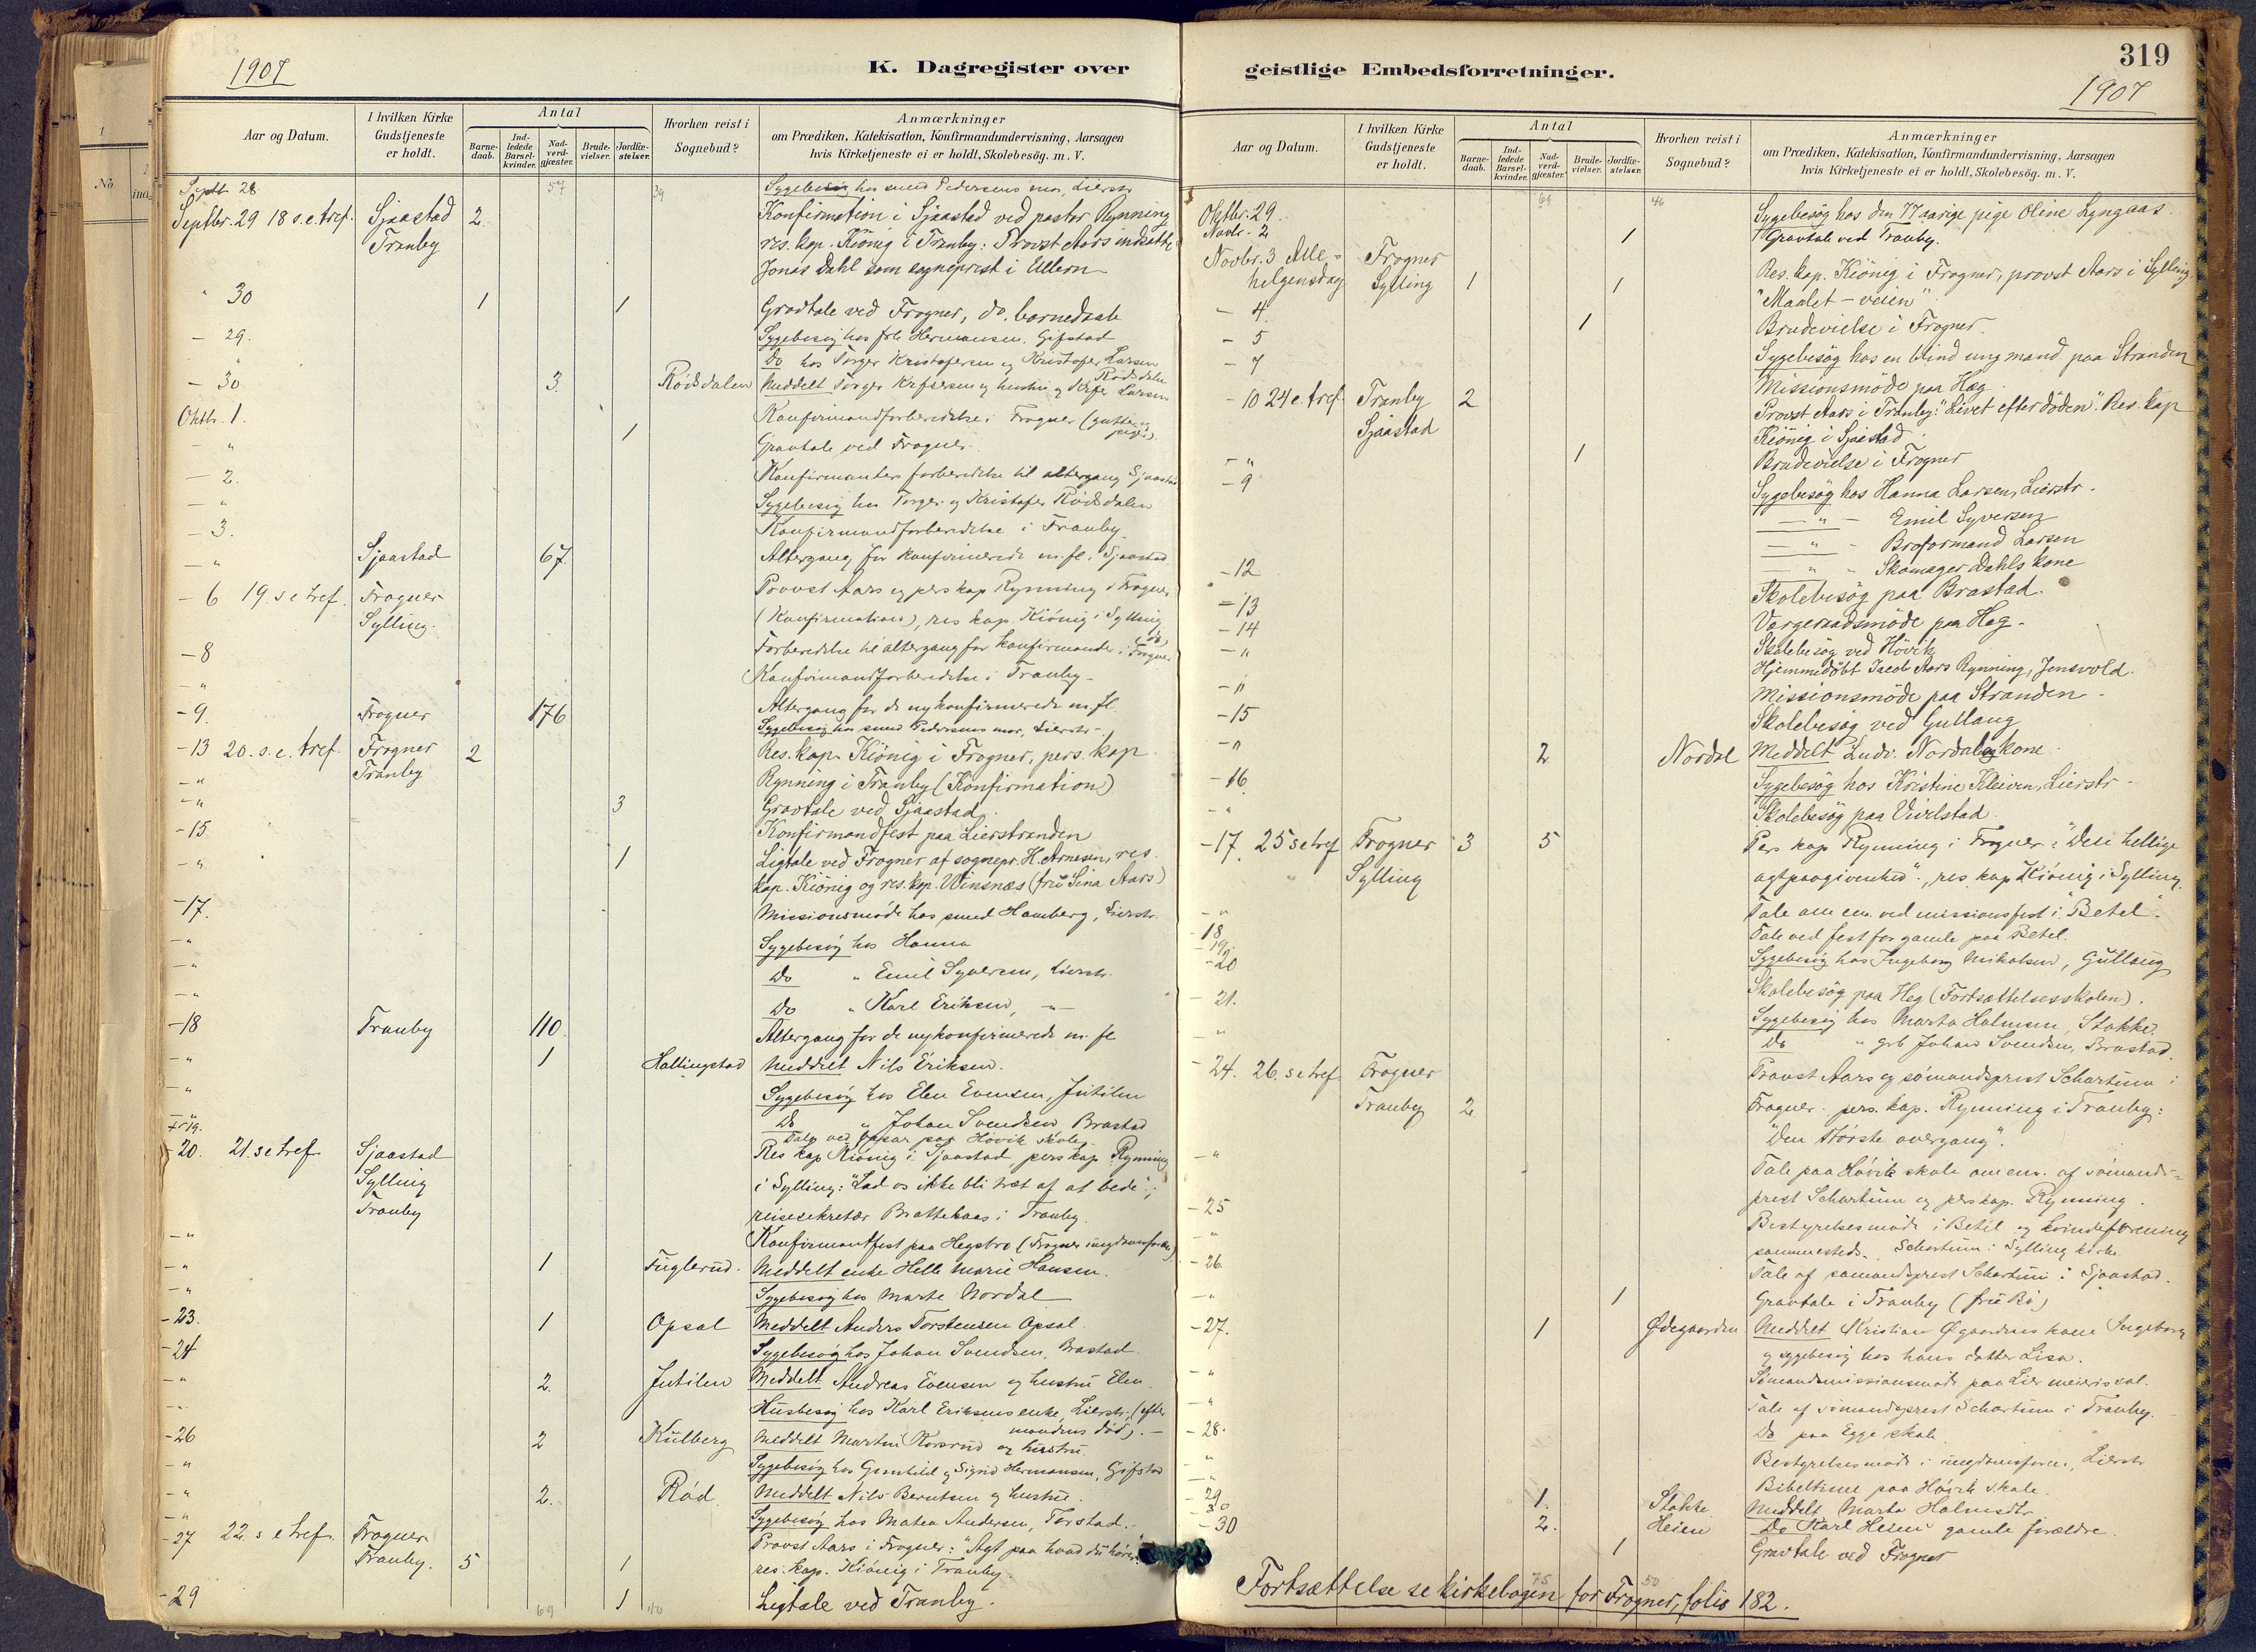 1907
K. Dagregister over
Aar og Datum.
I hvilken Kirke Gudstjeneste er holdt.
Antal
Barne-daab.
Ind-ledede Barsel-kvinder.
Nad-verd-gjæster.
Brude-vielser.
Jordfæ-stelser.
Hvorhen reist i Sognebud?
Anmærkninger
om Prædiken, Katekisation, Konfirmandundervisning, Aarsagen
hvis Kirketjeneste ei er holdt, Skolebesög. m. V.
Septb. 28 57 39 Sygebesøg hos smed Pedersens mor, Lierstr
Septbr. 29 18 s.e.tref. Sjaastad 2 Konfirmation i Sjaastad ved pastor Rynning
Tranby res. kap. Kiönig i Tranby: Provst Aars indsatte
Jonas Dahl som sogneprest i Ullern
" 30 1 1 Gravtale ved Frogner, do. barnedaab
- 29. Sygebesøg hos frk Hermansen, Gifstad
" Do hos Torger Kristofersen og Kristofer Larsen
Rödsdalen
- 30 3. Rödsdalen Meddelt Torger Krfsersen og hustru og Krfer Larsen
Oktb. 1. Konfirmandforberedelse i Frogner (gutter og piger)
- " 1 Gravtale ved Frogner
- 2. Konfirmanters forberedelse til altergang Sjaastad
- " Sygebesøg hos Torger og Kristofer Rödsdalen
- 3. Konfirmandforberedelse i Tranby
- " Sjaastad 67. Altergang for konfirmerede m.fl. i Sjaastad
- 6 19. s e tref. Frogner Provst Aars og pers kap Rynning i Frogner
Sylling. (Konfirmation), res kap. Kiönig i Sylling
(do)
- 8 Forberedelse til altergang for konfirmander i Frogner
- " Konfirmandforberedelse i Tranby
- 9. Frogner 176 Altergang for de nykonfirmerede m.fl.
Sygebesøg hos smed Pedersens mor, Lierstr
- 13 20. s. e. tref. Frogner 2 Res. kap. Kiönig i Frogner, pers. kap
- " Tranby Rynning i Tranby (Konfirmation)
- " 3 Gravtale ved Sjaastad.
- 15. Konfirmandfest paa Lierstranden
- " 1 Ligtale ved Frogner af sognepr. H. Arnesen, res.
kap. Kiönig og res. kap. Winsnæs (fru Sina Aars)
- 17. Missionsmöde hos smed Hamberg, Lierstr.
- " Sygebesög hos Hanna
- " Do " Emil Syversen, Lierstr.
- " Do " Karl Eriksen, - " -
- 18 Tranby 110. Altergang for de nykonfirmerede m. fl
- " 1 Hallingstad Meddelt Nils Eriksen.
- " Sygebesög hos Elen Evensen, Jutilen
Do " Johan Svendsen Brastad
19. Tale ved paa Høvik skole
- 20. 21. s e tref Sjaastad Res kap Kiönig i Sjaastad, pers kap Rynning
Sylling i Sylling: "Lad os ikke bli træt af at bede";
Tranby reisesekretær Brattekaas i Tranby.
- " Konfirmantfest paa Hegsbro (Frogner ungdomsforen)
- " 1 Fuglerud. Meddelt enke Helle Marie Hansen.
- " Sygebesøg hos Marte Nordal
- 23. 1 Opsal Meddelt Anders Torstensen Opsal.
- 24 Sygebesøg hos Johan Svendsen, Brastad
- " 2. Jutilen Meddelt Andreas Evensen og hustru Elen
- " Husbesøg hos Karl Eriksens enke, Lierstr. (efter
mandens död). -
- 26 2 Kulberg Meddelt Martin Korsrud og hustru
- " Sygebesøg hos Gunhild og Sigrid Hermansen, Gifstad
- " 2. Röd Meddelt Nils Berntsen og hustru.
- " Sygebesøg hos Matea Andersen, Torstad.
- 27 22. s e tref. Frogner Provst Aars i Frogner: "Agt paa hvad du hører"
Tranby. 5 1 res. kap. Kiönig i Tranby.
- 29 1 Ligtale ved Tranby.
69 46
geistlige Embedsforretninger.
319
1907
Aar og Datum.
I hvilken Kirke Gudstjeneste er holdt.
Antal
Barne-daab.
Ind-ledede Barsel-kvinder.
Nad-verd-gjæster.
Brude-vielser.
Jordfæ-stelser.
Hvorhen reist i Sognebud?
Anmærkninger
om Prædiken, Katekisation, Konfirmandundervisning, Aarsagen
hvis Kirketjeneste ei er holdt, Skolebesög. m. V.
69 46
Oktbr. 29. Sygebesøg hos den 77 aarige pige Oline Lyngaas.
Novbr. 2 1 Gravtale ved Tranby.
Novbr. 3 Alle- Frogner Res. kap. Kiönig i Frogner, provst Aars i Sylling
helgensdag Sylling 1 1 "Maalet - veien".
- 4. 1 Brudevielse i Frogner.
- 5 Sygebesög hos en blind ung mand paa Stranden
- 7 Missionsmöde paa Hæg.
- 10 24 e. tref Tranby 2 Provst Aars i Tranby: "Livet efter döden". Res. kap
Sjaastad Kiönig i Sjaastad
- " 1 Brudevielse i Frogner
- 9 Sygebesög hos Hanna Larsen, Lierstr.
- " - Emil Syversen
- " - Broformand Larsen
- " - Skomager Dahls kone
- 12 Skolebesög paa Brastad.
- 13 Værgeraadsmöde paa Heg.
- 14 Skolebesög ved Hövik
- " Hjemmedöbt Jacob Aars Rynning, Jensvold.
- " Missionsmöde paa Stranden
- 15 Skolebesøg ved Gullaug
- " 2 Nordal Meddelt Ludv. Nordal og kone
- 16 Sygebesög hos Kristine Kleiven, Lierstr
- " Skolebesög paa Vivelstad
- 17. 25 s e tref Frogner 3 5 Pers kap Rynning i Frogner: "Den hellige
Sylling agtpaagivenhed", res kap Kiönig i Sylling.
- " Tale om em. ved missionsfest i "Betel".
- 18 Tale ved fest for gamle paa Betel.
- 19.
- 20 Sygebesøg hos Ingeborg Mikalsen, Gullaug
- 21. Skolebesög paa Heg (Fortsættelsesskolen).
- " Sygebesøg hos Marta Halmsen, Stokke.
Do " grb Johan Svendsen, Brastad.
- 24. 26. s e tref Frogner Provst Aars og sömandsprest Schartum i
Tranby 2 Frogner. pers. kap. Rynning i Tranby:
"Den største overgang".
- " Tale paa Høvik skole om em. af sömands-
prest Schartum og pers kap. Rynning.
- 25 Bestyrelsesmöde i Betel og kvindeforening
- " sammesteds. Schartum i Sylling kirke
- 26 Tale af sømandsprest Schartum i Sjaastad.
- " 1 Gravtale i Tranby (fru Bö)
- 27. 1 Ødegaarden Meddelt Kristian Øgaardens kone Ingeborg
og sygebesøg hos hans datter Lisa.
- " Sømandsmissionsmøde paa Lier meieris sal.
- " Tale af sömandsprest Schartum i Tranby.
- 28. Do paa Egge skole.
- " Bestyrelsesmöde i ungdomsforen., Lierstr
- " Bibeltime paa Høvik skole.
- 29 1. Stokke Meddelt Marta Halmsdtr
- 30 2. Heien Do Karl Heiens gamle forældre.
- 30 1 Gravtale ved Frogner
75 50
Fortsættelse se kirkebogen for Frogner, folio 182.